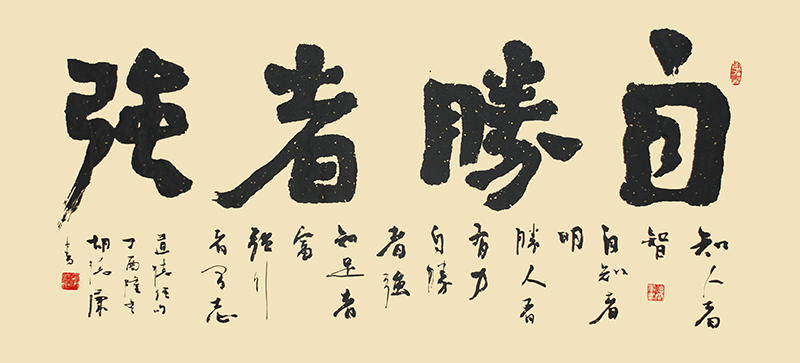 自勝者强
知人者
智
自知者
明
勝人者
有力
自勝
者強
知足者
富
強行
者有志
道德經句
丁酉隆冬
胡
書